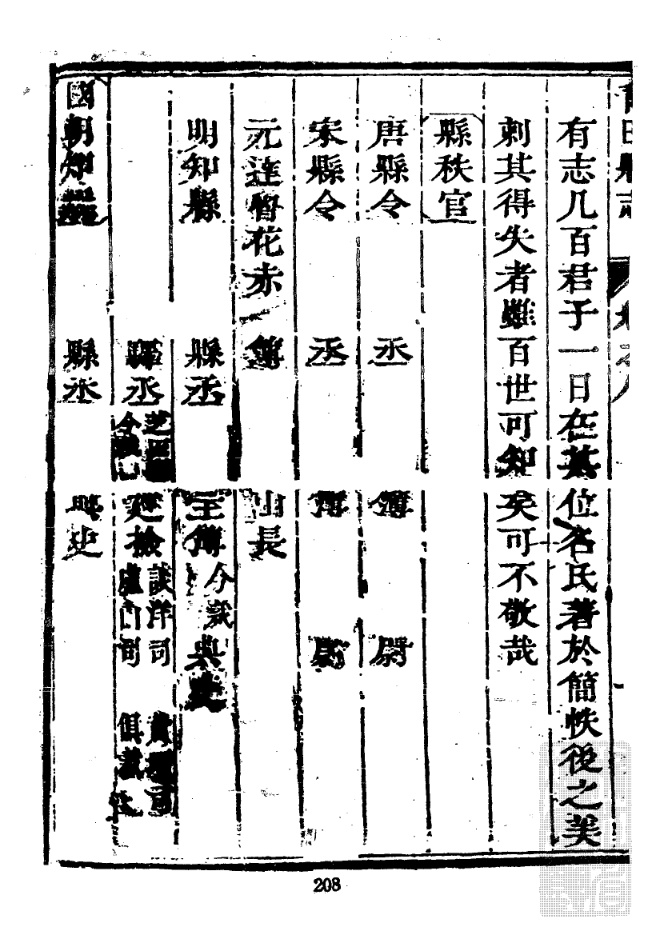 田縣志
有志凡百君子一日在其位名氏著於簡帙後之美
刺其得失者雖百世可知矣可不敬哉
縣秩官
唐縣令 丞 簿 尉
宋縣令 丞 簿 尉
元達魯花赤 簿 山長
明知縣 縣丞 主簿今裁 典史
驛丞 今裁 巡檢 談洋司 盧山司 俱裁
國朝知縣 縣丞 典史
208